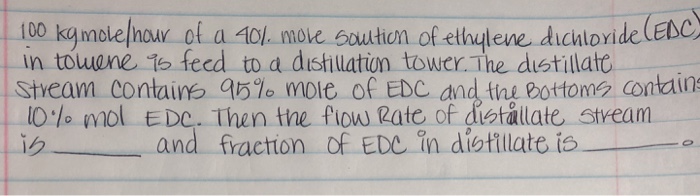 100 kgmole/hour of a 40%. mole soution of ethylene dichloride (EDC)
in toluene is feed to a distillation tower. The distillate
stream contains 95% mole of EDC and the Bottoms contains
10% mol EDC. Then the flow Rate of distallate stream
is ______ and fraction of EDC in distillate is ______.